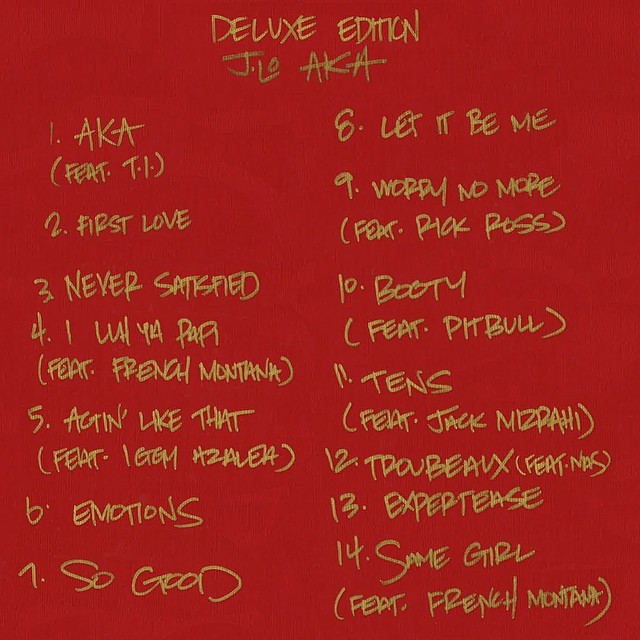 DELUXE EDITION
J.LO AKA
1. AKA
(FEAT. T.I.)
2. FIRST LOVE
3. NEVER SATISFIED
4. I LUH YA PAPI
(FEAT. FRENCH MONTANA)
5. ACTIN' LIKE THAT
(FEAT. IGGY AZALEA)
6. EMOTIONS
7. SO GOOD
8. LET IT BE ME
9. WORRY NO MORE
(FEAT. RICK ROSS)
10. BOOTY
(FEAT. PITBULL)
11. TENS
(FEAT. JACK MIZRAHI)
12. TROUBEAUX (FEAT. NAS)
13. EXPERTEASE
14. SAME GIRL
(FEAT. FRENCH MONTANA)